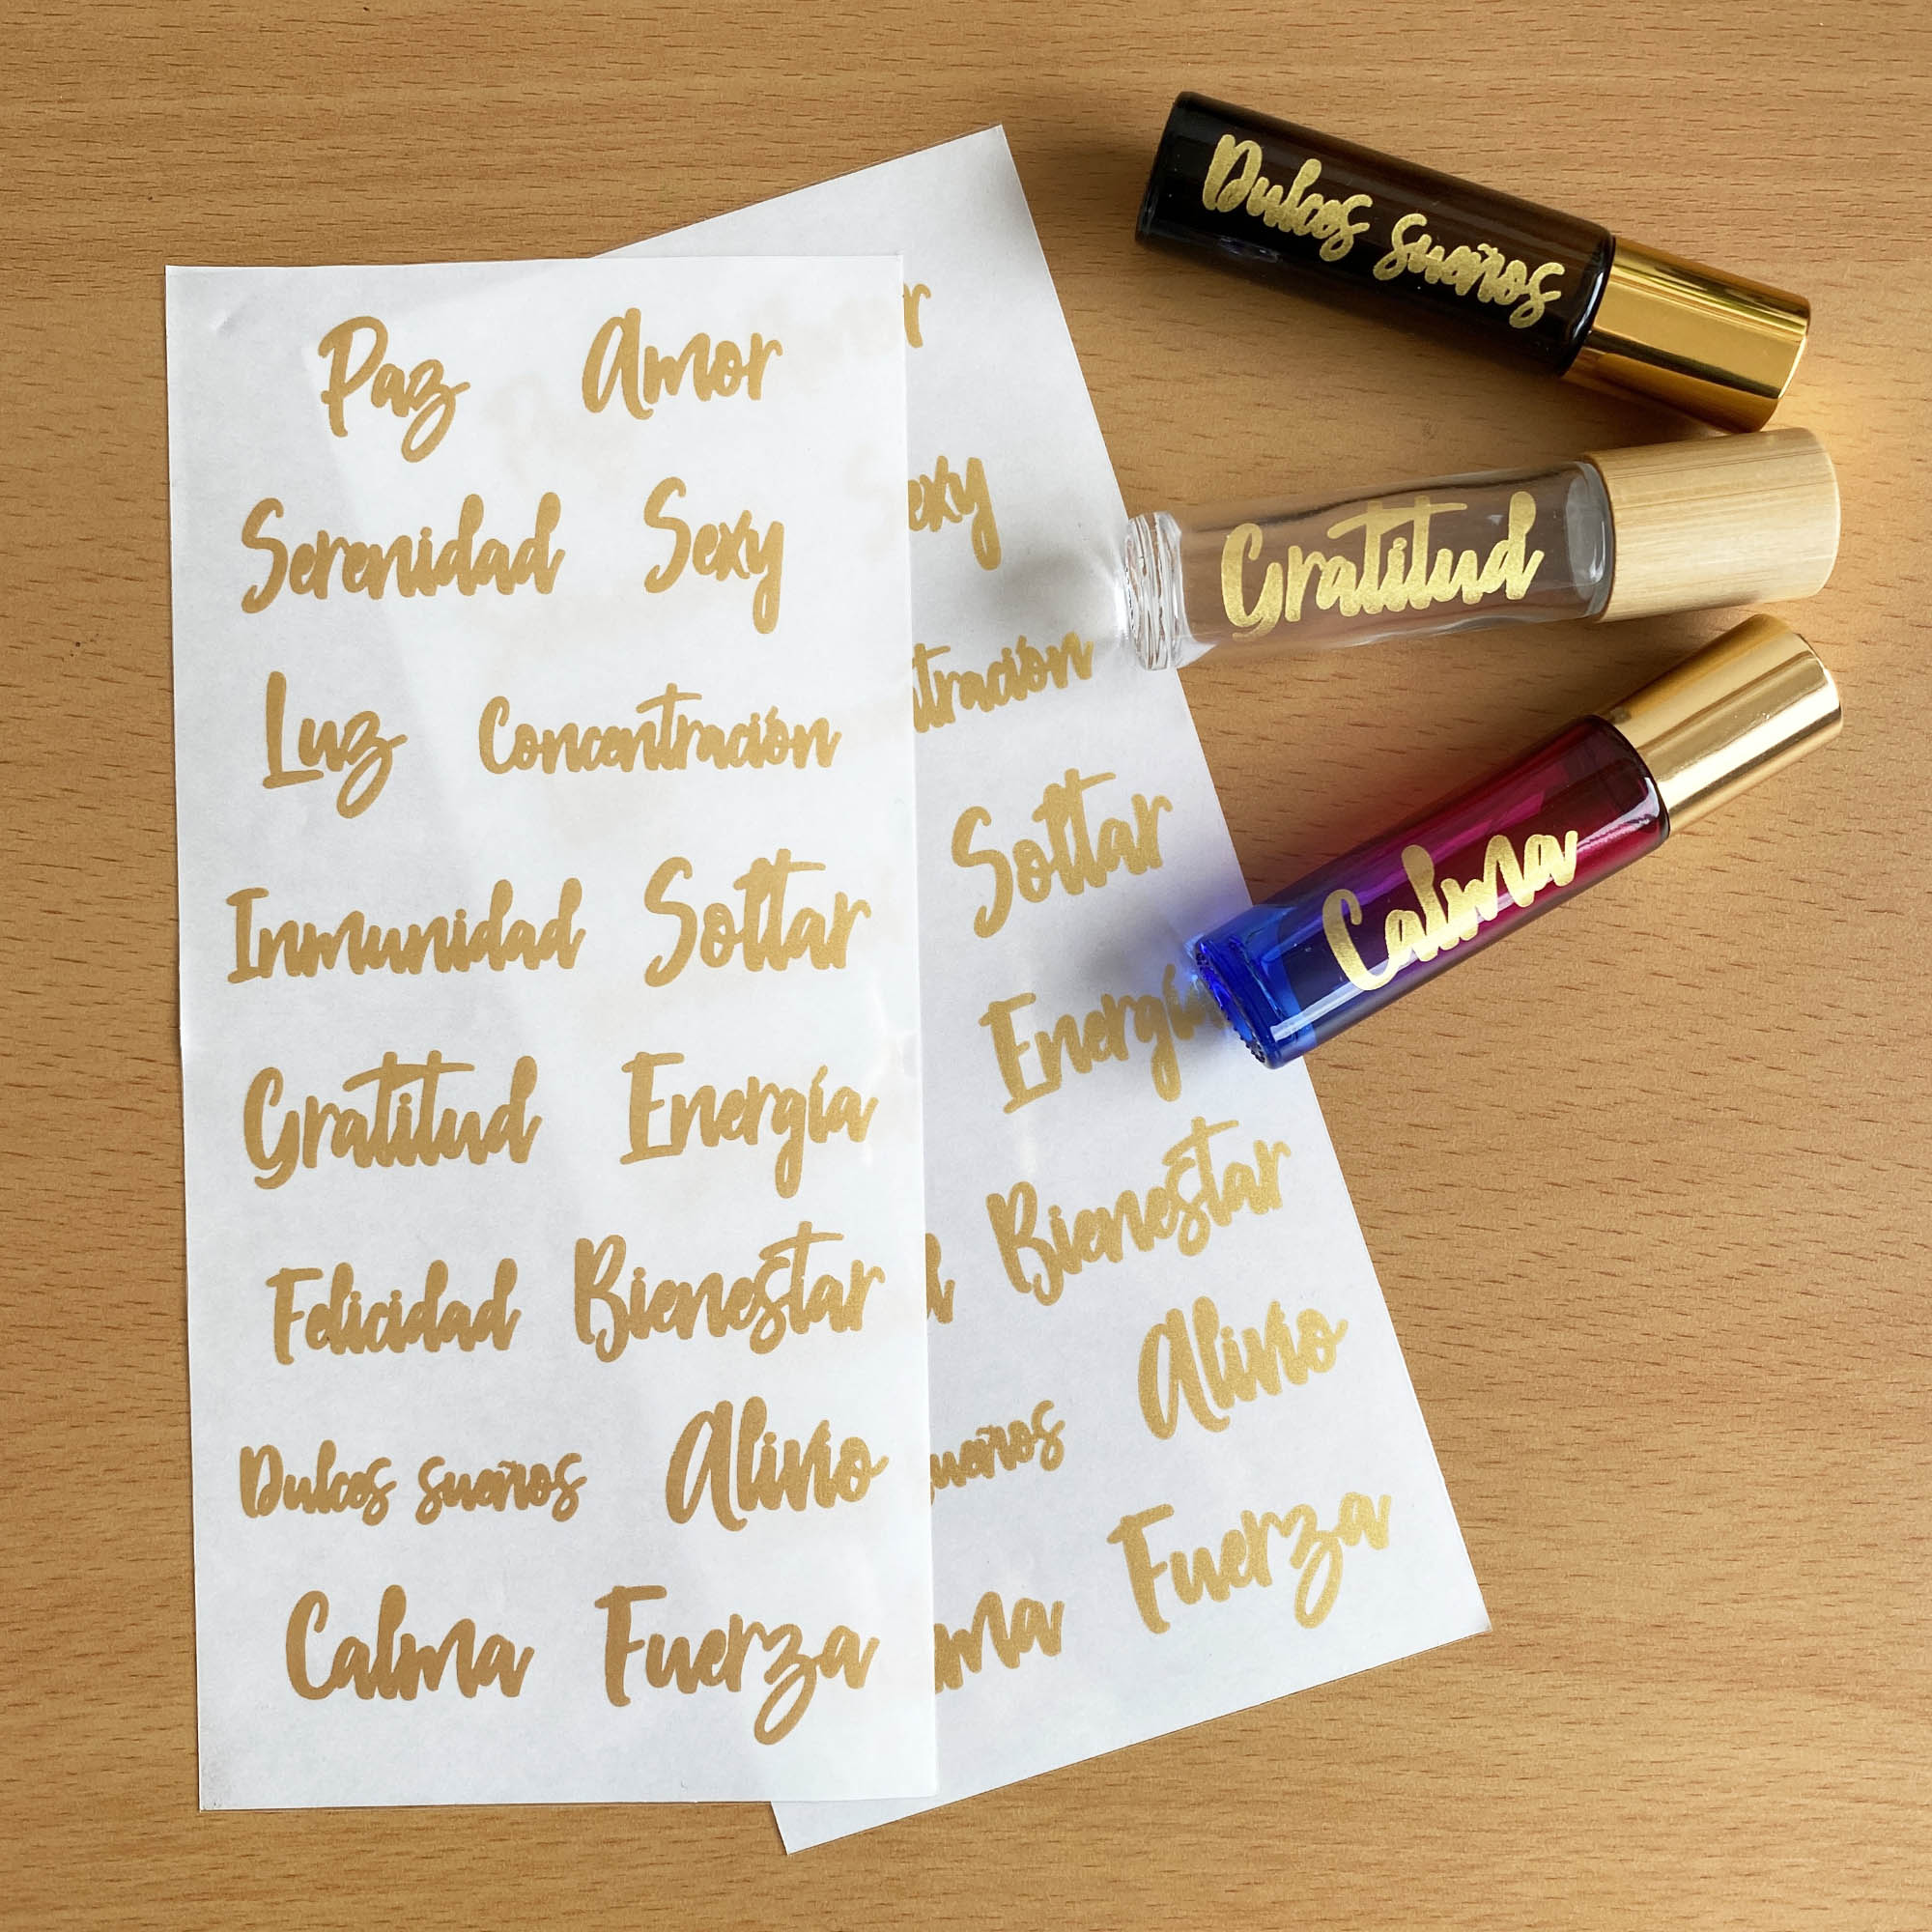 Paz Amor
Serenidad Sexy
Luz Concentración
Inmunidad Soltar
Gratitud Energía
Felicidad Bienestar
Dulces sueños Alivio
Calma Fuerza
r
exy
tración
Soltar
Energí
d Bienestar
Alivio
ueños
ma Fuerza
Dulces sueños
Gratitud
Calma